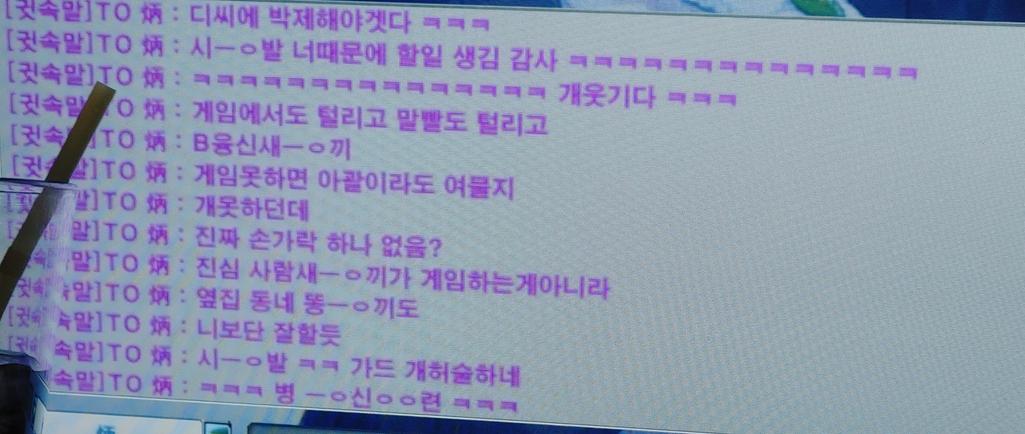 [귓속말]TO 炳 : 디씨에 박제해야겟다 ㅋㅋㅋ
[귓속말]TO 炳 : 시ㅡㅇ발 너때문에 할일 생김 감사 ㅋㅋㅋㅋㅋㅋㅋㅋㅋㅋㅋㅋㅋㅋ
[귓속말]TO 炳 : ㅋㅋㅋㅋㅋㅋㅋㅋㅋㅋㅋㅋㅋㅋ 개웃기다 ㅋㅋㅋ
[귓속말]TO 炳 : 게임에서도 털리고 말빨도 털리고
[귓속말]TO 炳 : B융신새ㅡㅇ끼
[귓속말]TO 炳 : 게임못하면 아괄이라도 여물지
말]TO 炳 : 개못하던데
말]TO 炳 : 진짜 손가락 하나 없음?
말]TO 炳 : 진심 사람새ㅡㅇ끼가 게임하는게아니라
말]TO 炳 : 옆집 동네 똥ㅡㅇ끼도
속말]TO 炳 : 니보단 잘할듯
속말]TO 炳 : 시ㅡㅇ발 ㅋㅋ 가드 개허술하네
속말]TO 炳 : ㅋㅋㅋ 병 ㅡㅇ신ㅇㅇ련 ㅋㅋㅋ
炳